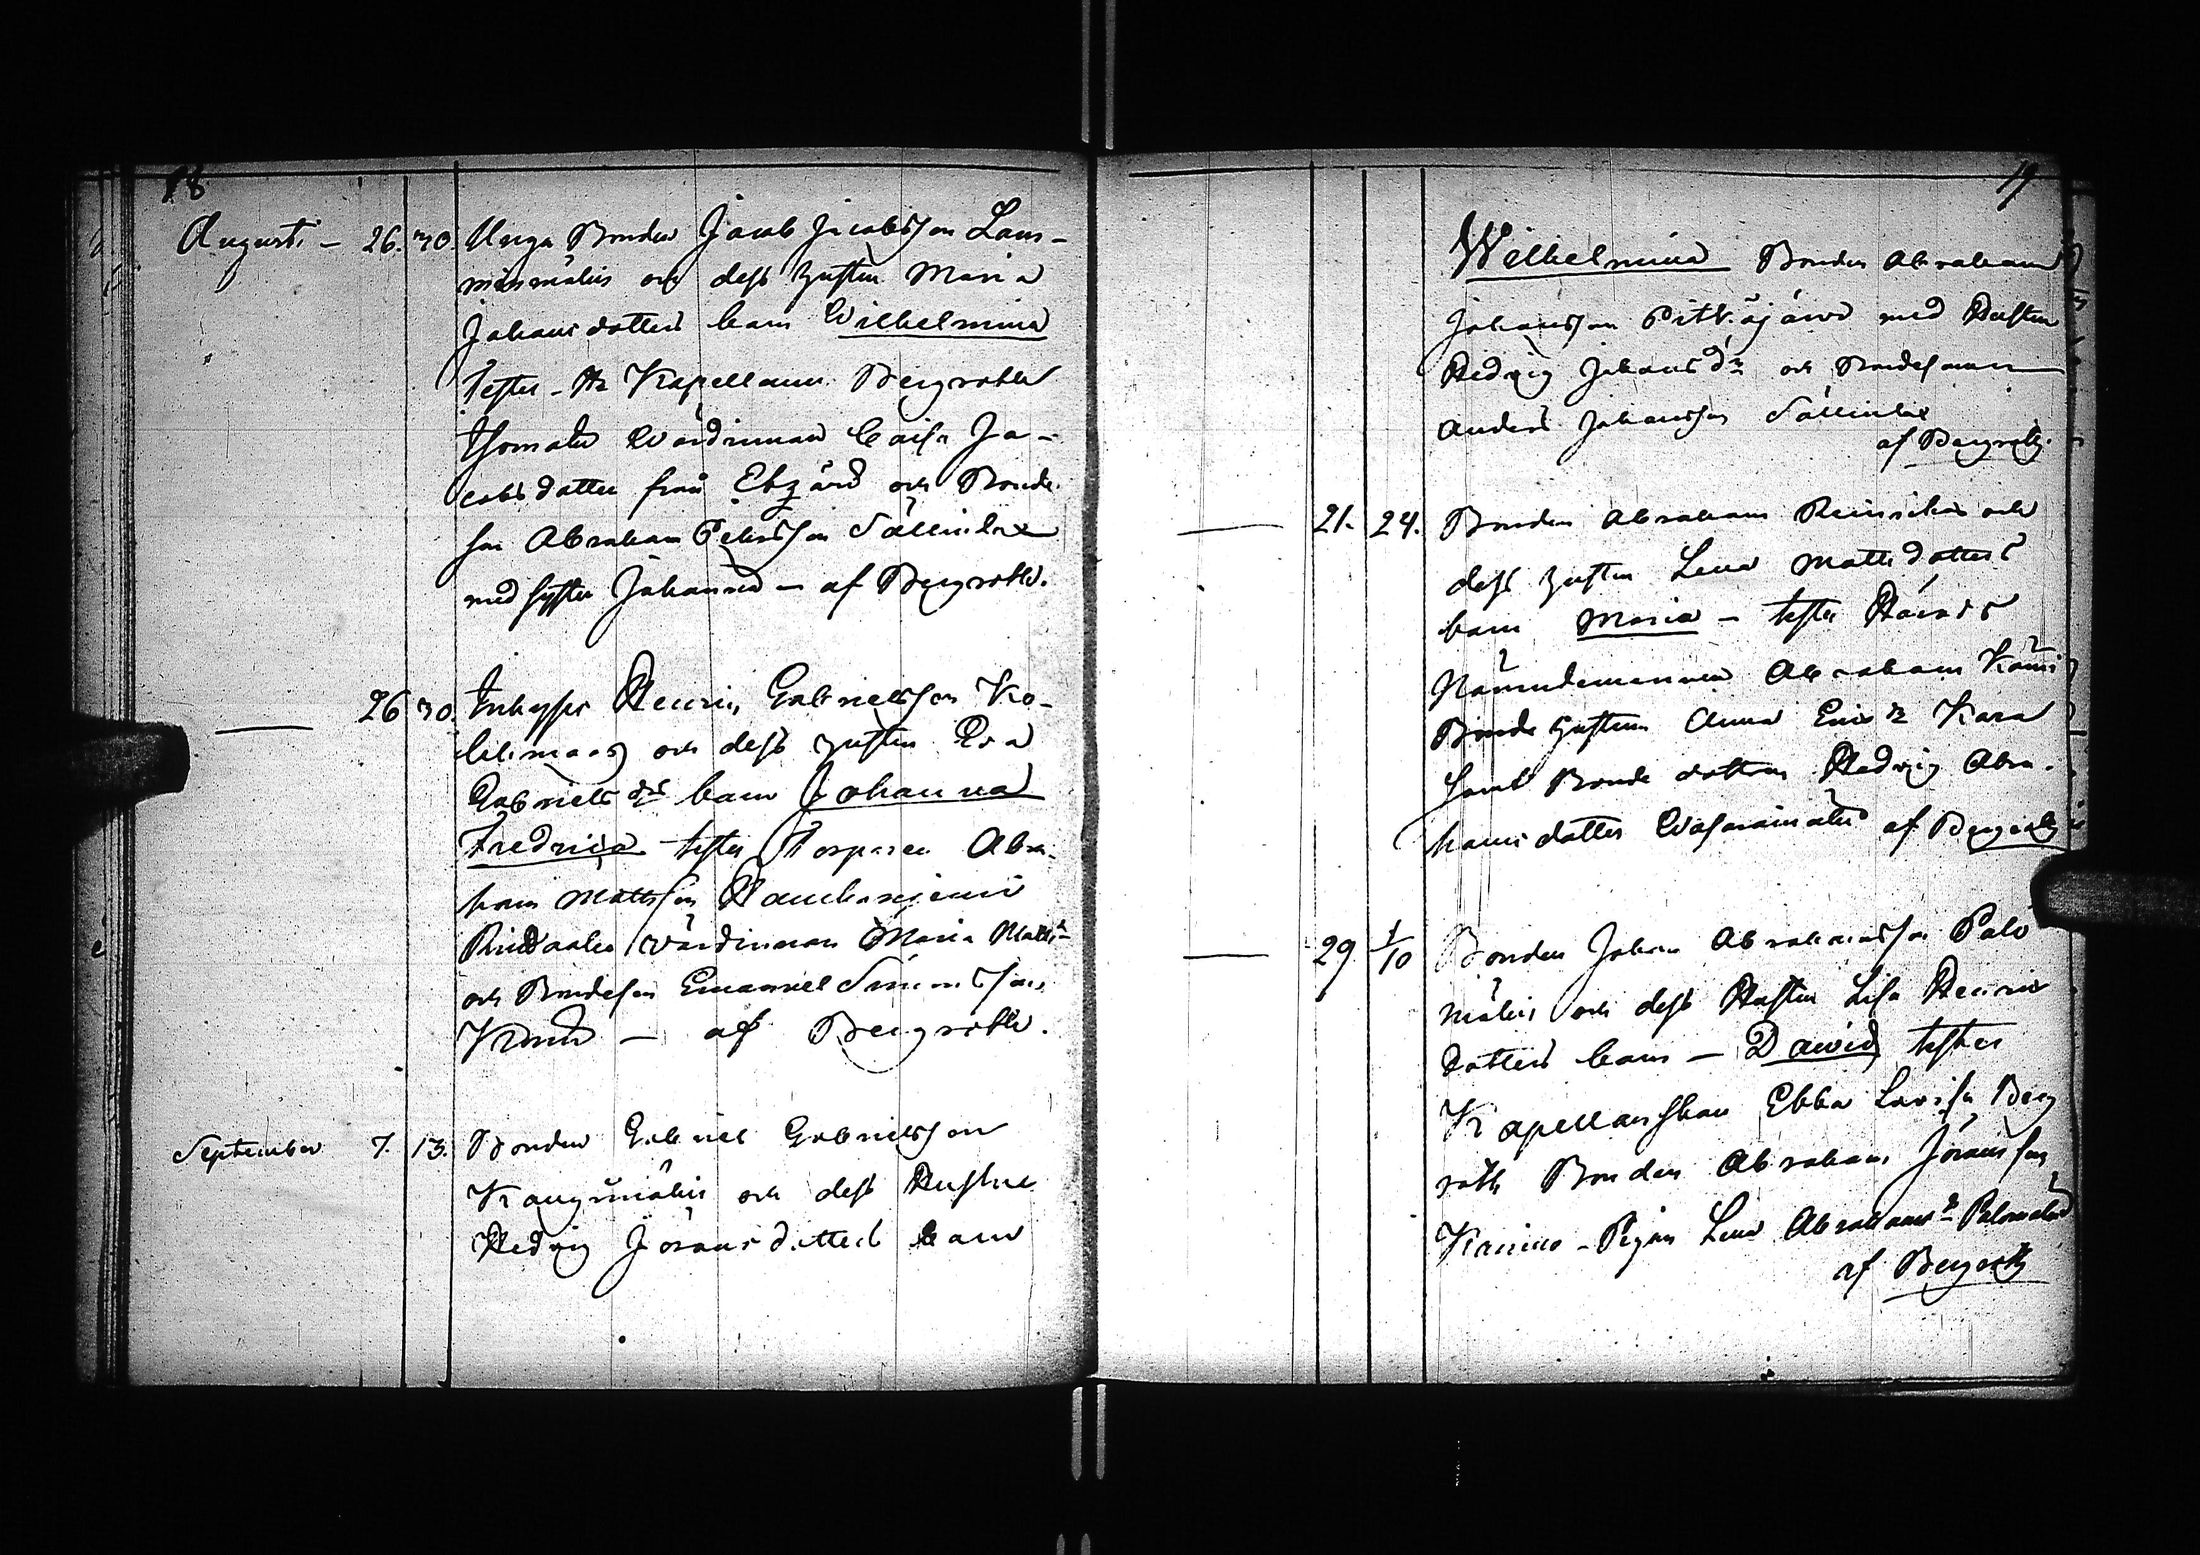 18
Augusti - 26. 30. Unga Bonden Jacob Jacobsson Lam-
minmäkis och dess hustru Maria
Johansdotters barn Wilhelmina
testes - Hr Kapellanen Bergroth
Thomala Wärdinnan Caisa Ja-
cobsdotter från och Bonde
son Abraham Petersson Sällinka
med syster Johanna - af Bergroth.
26 30. Inhyses Henric Gabrielsson Ko-
och dess hustru Eva
Gabriels drs barn Johanna
Fredrica testes Torparen Abra-
ham Mattsson Hauhaniemi
wärdinnan Maria Matts
och Bondeson Emanuel Simonsson
- af Bergroth.
September 7. 13. Bonden Gabriel Gabrielsson
Kangasmäkis och dess Hustru
Hedvig Göransdotters barn
19
Wilhelmina Bonden Abraham
Johansson Pitkäjärvi med Hustru
Hedvig Johans dr och Bondesonen
Anders Johansson Sällinka
af Bergroth.
21. 24. Bonden Abraham Reinikas och
dess hustru Lena Mattsdotters
barn Maria - testes Härads
Nämndemannen Abraham
Bonde hustrun Anna Erics dr
samt Bonde dottren Hedvig Abra-
hamsdotter af Bergroth
29 1/10 Bonden Johan Abrahamsson Palo
mäkis och dess Hustru Lisa Henric
dotters barn - David testes
Kapellanskan Ebba Lovisa Berg
roth Bonden Abraham Göransson
Pigan Lena Abrahams dr Palomäki
af Bergroth